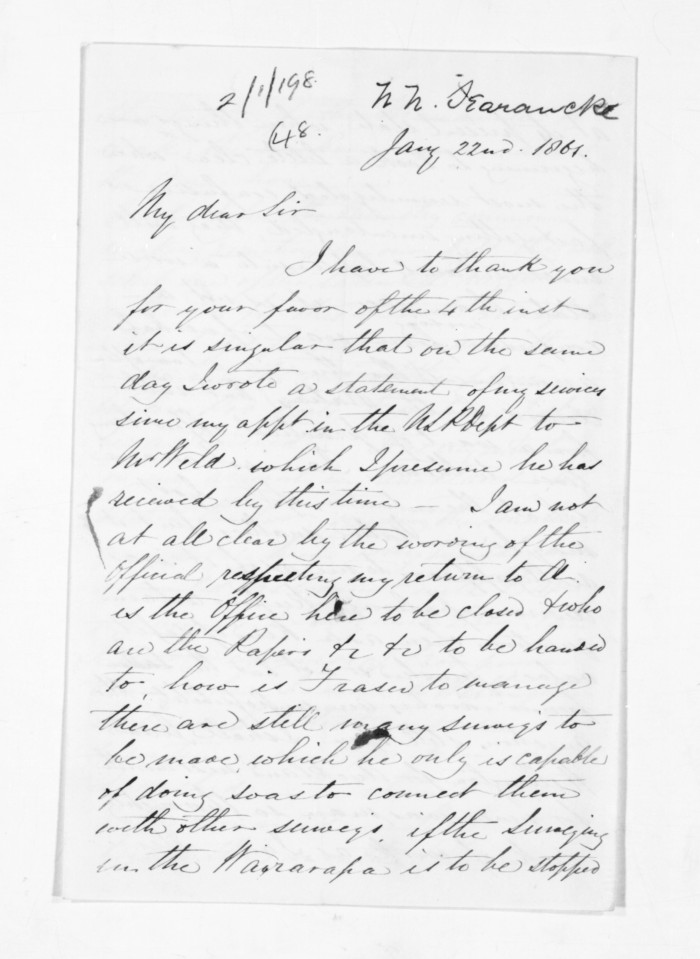 2/1/198.
W N. Searancke
(48.
Jany 22nd. 1861.
My dear Sir
I have to thank you
for your favor of the 4th inst
it is singular that on the same
day I wrote a statement of my services
since my appt in the N L P Dept to
Mr Weld. which I presume he has
recieved by this time — I am not
at all clear by the wording of the
Official respecting my return to A.
is the Office here to be closed & who
are the Papers &c &c to be handed
to, how is Fraser to manage
there are still many surveys to
be made, which he only is capable
of doing so as to connect them
with other surveys, if the Surveying
in the Wairarapa is to be stopped